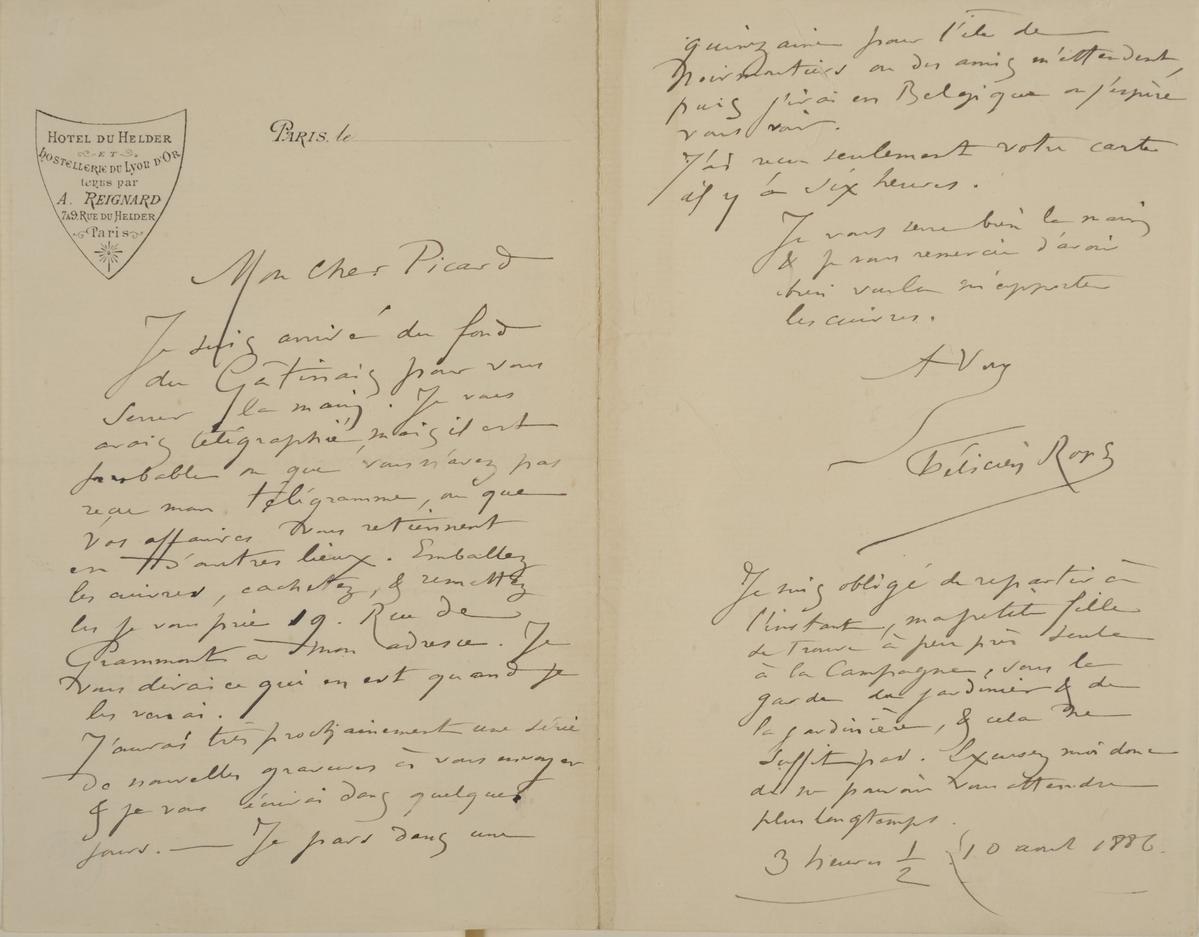 HOTEL DU HELDER
ET
HOSTELLERIE DU LYON D'OR
tenus par
A. REIGNARD
7&9. RUE DU HELDER
Paris
PARIS, le
Mon cher Picard
Je suis arrivé du fond
du Gâtinais pour vous
serrer la main. Je vous
avais télégraphié, mais il est
probable ou que vous n'avez pas
reçu mon télégramme, ou que
vos affaires vous retiennent
en d'autres lieux. Emballez
les cuivres, cachetez, & remettez
les je vous prie 19. Rue de
Grammont à mon adresse. Je
vous dirai ce qui en est quand je
les verrai.
J'aurai très prochainement une série
de nouvelles gravures à vous envoyer
& je vous écrirai dans quelques
jours. — Je pars dans une
quinzaine pour l'île de
Noirmoutiers ou des amis m'attendent,
puis j'irai en Belgique ou j'espère
vous voir.
J'ai reçu seulement votre carte
il y a six heures.
Je vous serre bien la main
& je vous remercie d'avoir
bien voulu m'apporter
les cuivres.
A Vous
Félicien Rops
Je suis obligé de repartir à
l'instant, ma petite fille
se trouve à peu près seule
à la Campagne, sous la
garde du jardinier & de
la jardinière, & cela ne
suffit pas. Excusez moi donc
de ne pouvoir vous attendre
plus longtemps.
3 heures 1/2 10 aout 1886.